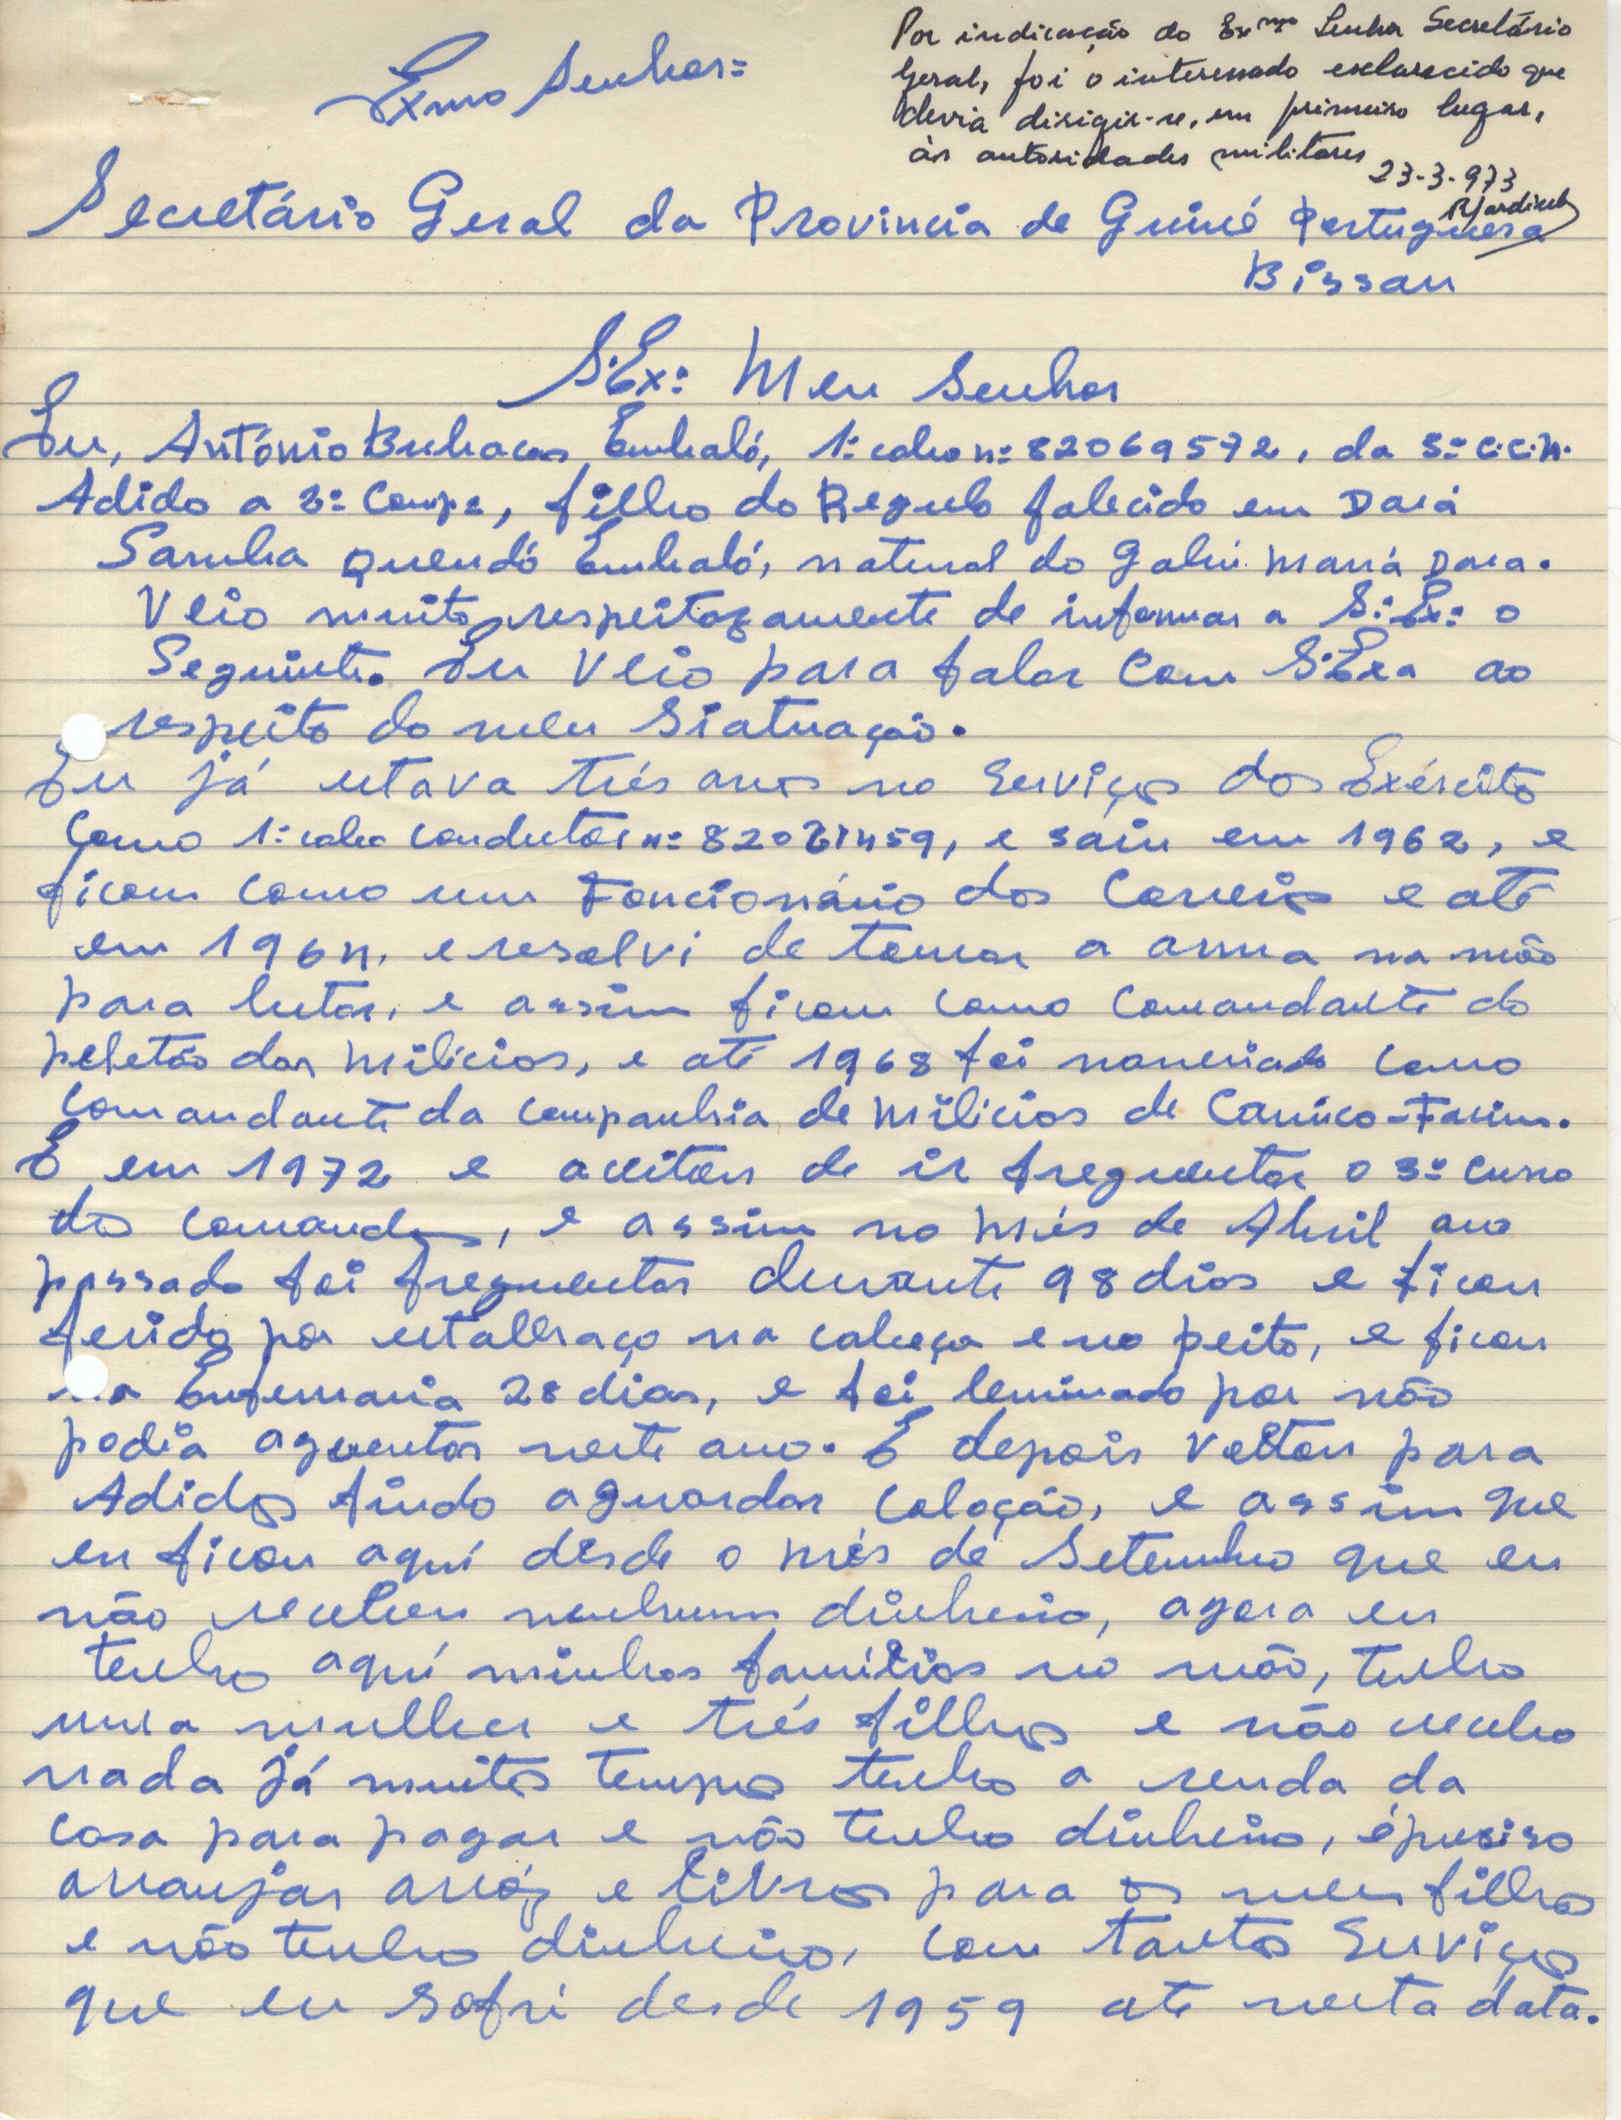 Por indicação do Exmo Senhor Secretário
Geral, foi o interessado esclarecido que
devia dirigir-se, em primeiro lugar,
às autoridades militares
23-3-973
Exmo Senhor=
Secretário Geral da Provincia de Guiné Portuguesa
Bissau
S.Ex: Meu Senhor
Eu, António Embaló, 1º cabo nº 82069572, da 3ª C.C.N.
Adido a 3ª Compª, filho do Regulo falecido em Dará
Samba Quendó Embaló, natural do Gabú Maná Dara.
Veio muito respeitozamente de informar a S.Ex: o
Seguinte. Eu Veio para falar Com S.Exa ao
respeito do meu Siatuação.
Eu já estava três anos no Serviços dos Exército
Como 1º cabo condutor nº e saiu em 1962, e
ficou como um Foncionário dos Correios e até
em 1964, e resolvi de tomar a arma na mão
para lutar, e assim ficou como Comandante do
peletão das Milícias, e até 1968 foi nomeiado como
Comandante da companhia de Milicias de Canico-Farim.
E em 1972 e aceitou de ir freguentar o 3º curso
dos comandos, e assim no Mês de Abril ano
passado foi freguentar durante 98 dias e ficou
ferido por estalhaço na cabeça e no peito, e ficou
na Enfermaria 28 dias, e foi leminado por não
podia aguentar neste ano. E depois Voltou para
Adidos findo aguardar Coloção, e assim que
eu ficou aquí desde o mês de Setembro que eu
não recebeu nenhum dinheiro, agora eu
tenho aquí minhas famílias no mão, tenho
uma mulher e três filhos e não recebo
nada já muitos tempos tenho a renda da
casa para pagar e não tenho dinheiro, é preciso
arranjar arróz e livros para os meus filhos
e não tenho dinheiro, com tantos Serviços
que eu Sofri desde 1959 até nesta data.